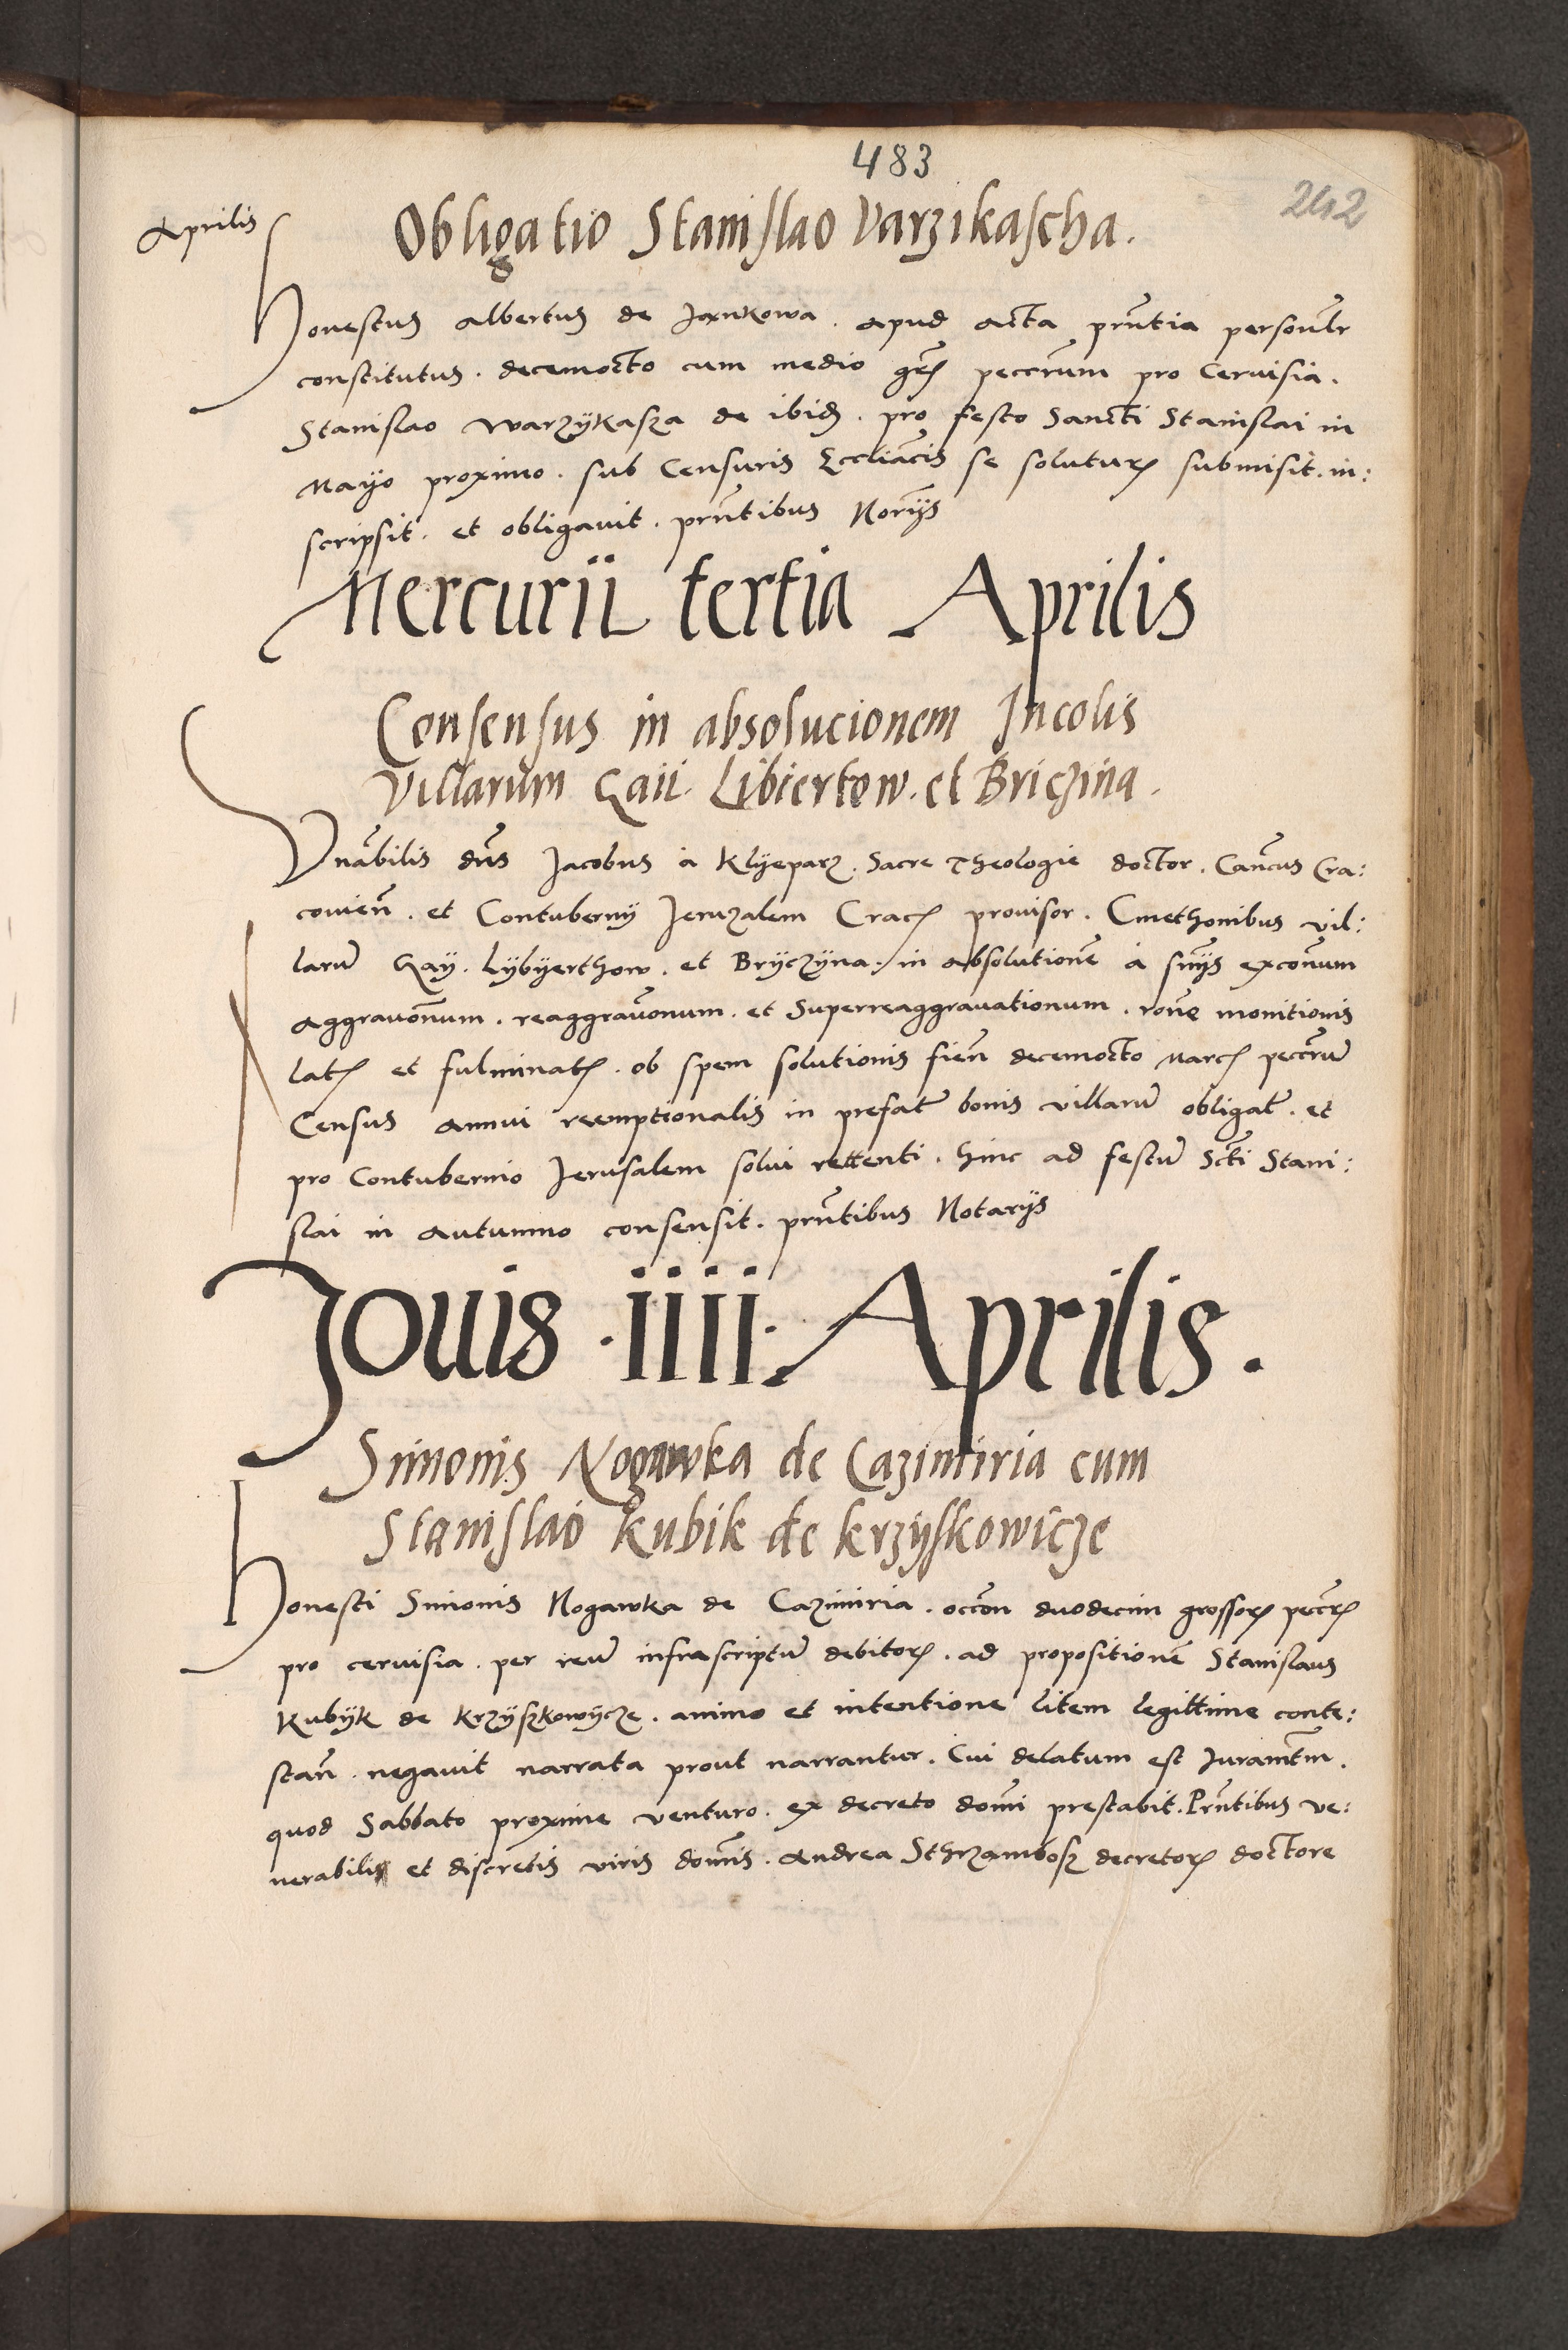 483
242
Aprilis
Obligatio Stanislao Varzikascha.
Honestus Albertus de Jankowa. apud acta prñtia personlr
constitutus. decemocto cum medio grs peccrum pro Cervisia.
Stanislao Warzÿkasza de ibid. pro festo Sancti Stanislai in
Mayo proximo. sub Censuris Eccliacis se soluturum submisit. in:
scripsit. et obligavit. prñtibus Norÿs
Mercurii tertia Aprilis
Consensus in absolucionem Incolis
Villarum Gaii. Libiertow. et Briczina.
Vnãbilis dñs Jacobus à Klÿeparz. Sacre Theologie doctor. Cancus Cra:
covieñ. et Contubernÿ Jeruzalem Crac provisor. Cmethonibus vil:
larũ Gaÿ. Lÿbÿerthow. et Brÿczÿna. in absolutionẽ à snÿs exconum
aggravonum. reaggravonum. et Superreaggravationum. rone monitionis
lat et fulminat. ob spem solutionis fieñ decemocto marc peccrũ
Census annui reemptionalis in prefat bonis villarũ obligat. et
pro Contubernio Jerusalem solui rettenti. hinc ad festũ Scti Stani:
slai in autumno consensit. prñtibus Notarÿs
Jovis .iiii. Aprilis.
Simonis Nogawka de Cazimiria cum
Stanislao Kubik de Krzÿskowicze
Honesti Simonis Nogawka de Cazimiria. occon duodecim grossor peccr
pro cervisia. per reũ infrascriptũ debitor. ad propositionẽ Stanislaus
Kubÿk de Krzÿszkowÿcze. animo et intentione litem legittime conte:
stañ. negavit narrata prout narrantur. Cui delatum est Juramtm.
quod Sabbato proxime venturo. ex decreto domi prestabit. Prñtibus ve:
nerabilis et discretis viris domis. Andrea Sthrzambosz decretor doctore